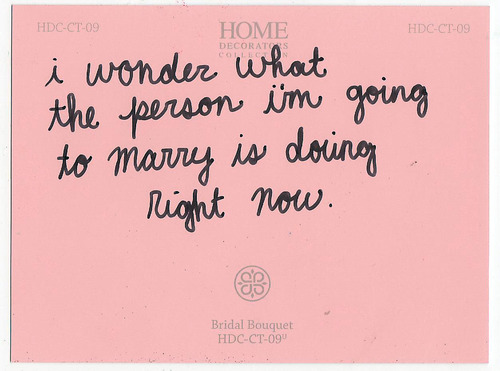 HDC-CT-09 HOME HDC-CT-09
DECORATORS
COLLECTION
i wonder what
the person i'm going
to marry is doing
right now.
Bridal Bouquet
HDC-CT-09U